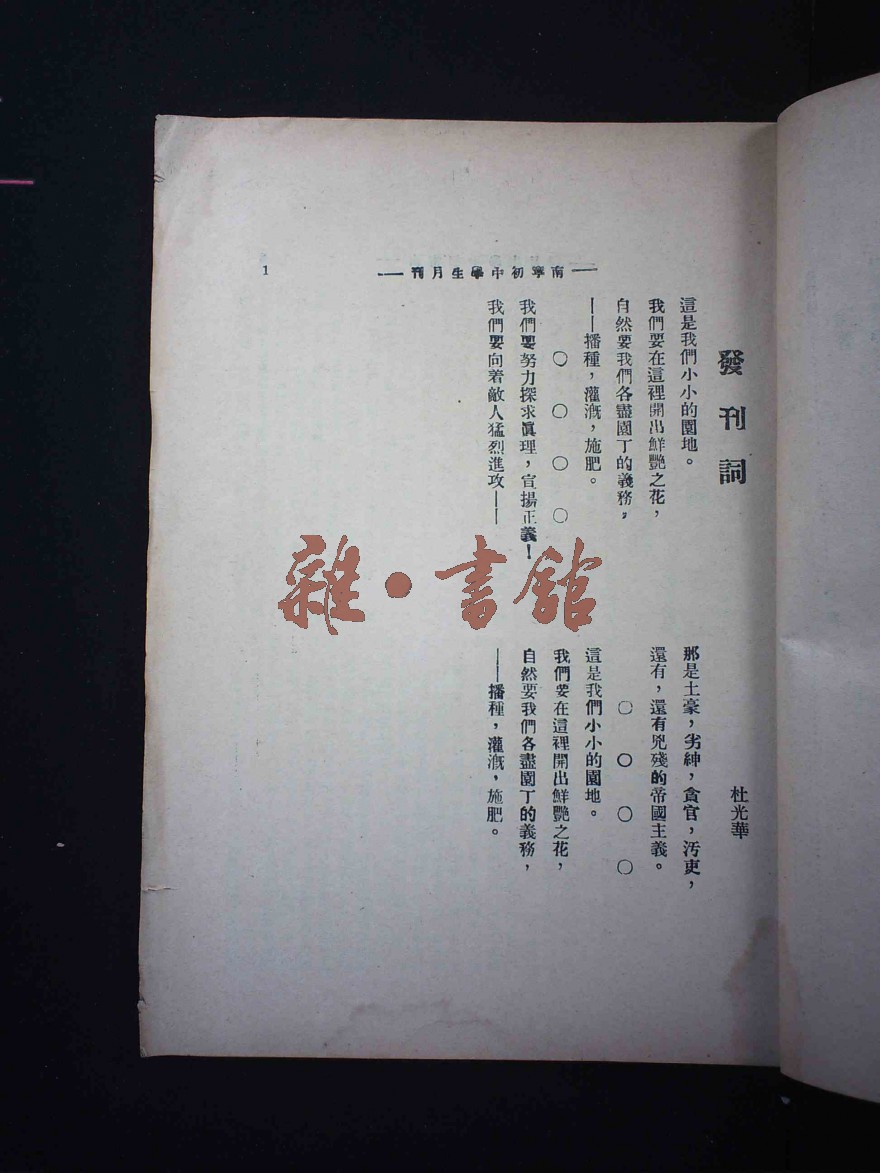 南寧初中學生月刊
1
發刊詞
杜光華
這是我們小小的園地。
我們要在這裡開出鮮艷之花，
自然要我們各盡園丁的義務，
——播種，灌溉，施肥。
○ ○ ○ ○
我們要努力探求眞理，宣揚正義！
我們要向着敵人猛烈進攻——
那是土豪，劣紳，貪官，汚吏，
還有，還有兇殘的帝國主義。
○ ○ ○ ○
這是我們小小的園地。
我們要在這裡開出鮮艷之花，
自然要我們各盡園丁的義務，
——播種，灌溉，施肥。
雜·書館